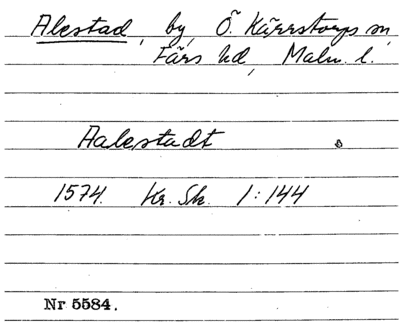 Alestad, by, Ö. Kärrstorps sn,
Färs hd, Malm. l.
Aalestadt
1574. Kr. Sk. 1:144
Nr 5584.